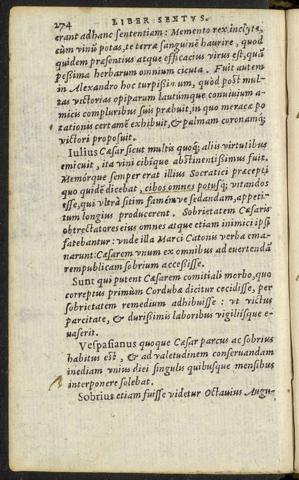 274 LIBER SEXTVS.
erant ad hanc sententiam: Memento rex inclyte,
cùm vinũ potas, te terræ sanguinẽ haurire, quod
quidem præsentius atque efficacius virus est, quã
pessima herbarum omnium cicuta. Fuit autem
in Alexandro hoc turpissimum, quòd post mul-
tas victorias opiparum lautúmque conuiuium a-
micis compluribus suis præbuit, in quo meraca po
tationis certamẽ exhibuit, & palmam coronamq́;
victori proposuit.
Iulius Cæsar sicut multis quoq; aliis virtutibus
emicuit, ita vini cibique abstinentissimus fuit.
Memórque semper erat illius Socratici præcepti
quo quidẽ dicebat, cibos omnes potusq́; vitandos
esse, qui vltrà sitim famémve sedandam, appeti-
tum longius producerent. Sobrietatem Cæsaris
obtrectatores eius omnes atque etiam inimici ipsi
fatebantur: vnde illa Marci Catonis verba ema-
narunt: Cæsarem vnum ex omnibus ad euertendã
rempublicam sobrium accessisse.
Sunt qui putent Cæsarem comitiali morbo, quo
correptus primùm Cordubæ dicitur cecidisse, per
sobrietatem remedium adhibuisse: vt victus
parcitate, & durissimis laboribus vigiliisque e-
uaserit.
Vespasianus quoque Cæsar parcus ac sobrius
habitus est, & ad valetudinem conseruandam
inediam vnius diei singulis quibusque mensibus
interponere solebat.
Sobrius etiam fuisse videtur Octauius Augu-